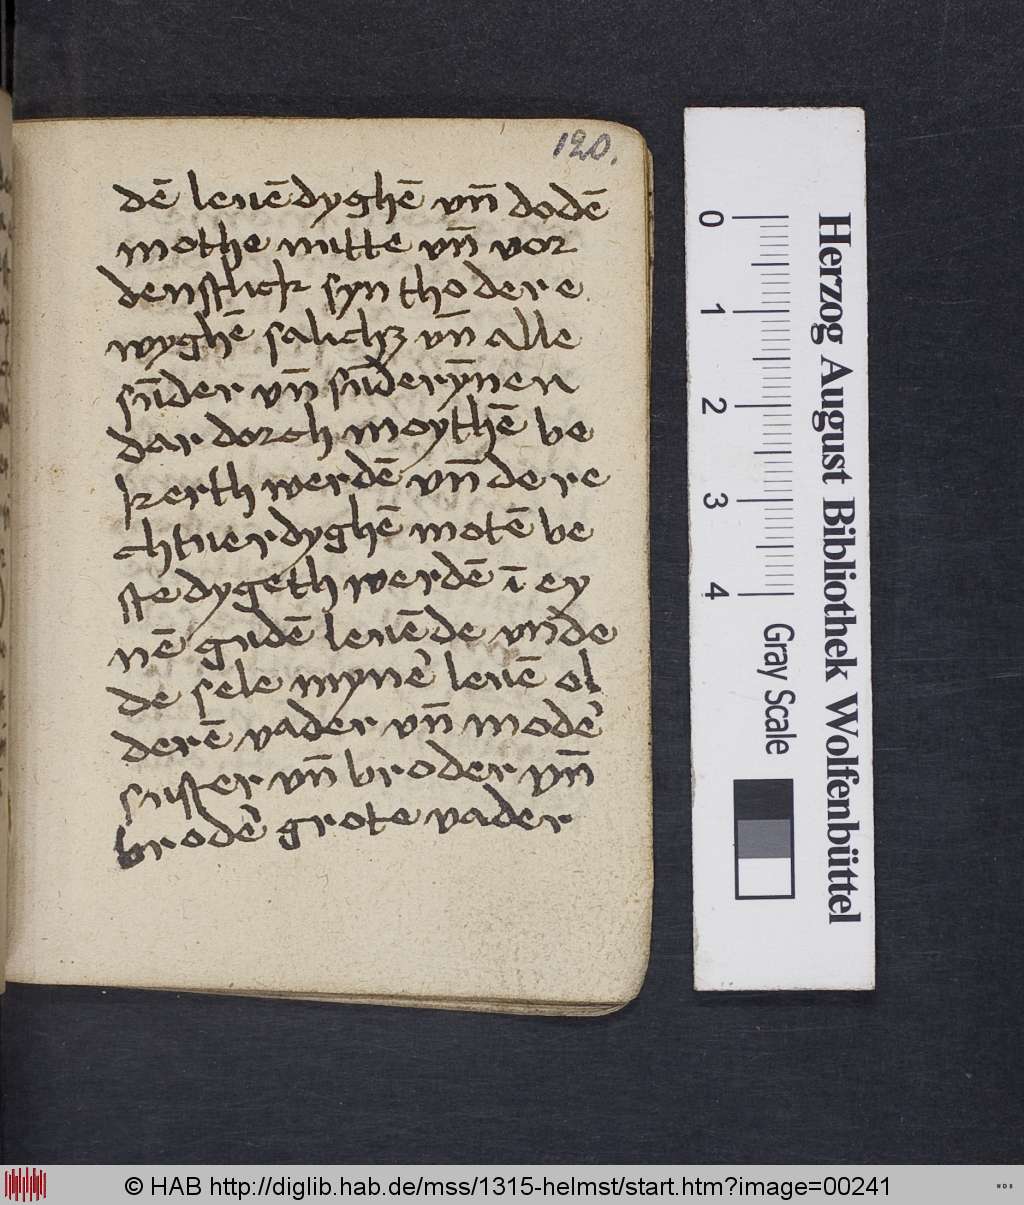 120.
dē leuē dyghē vn̄ dodē
mothe nutte vn̄ vor
denstlick syn tho dere
wyghē salichz vn̄ alle
sūder vn̄ sūderȳnen
dar dorch moythē be
kerth werdē vn̄ de re
chtuerdyghē motē be
stedygeth werdē ī ey
nē gudē leuēde vn̄ de
de sele myne᷑ leuē ol
derē vader vn̄ mode᷑
suster vn̄ broder vn̄
brode᷑ grote vader
Herzog August Bibliothek Wolfenbüttel
0
1
2
3
4
Gray Scale
© HAB http://diglib.hab.de/mss/1315-helmst/start.htm?image=00241